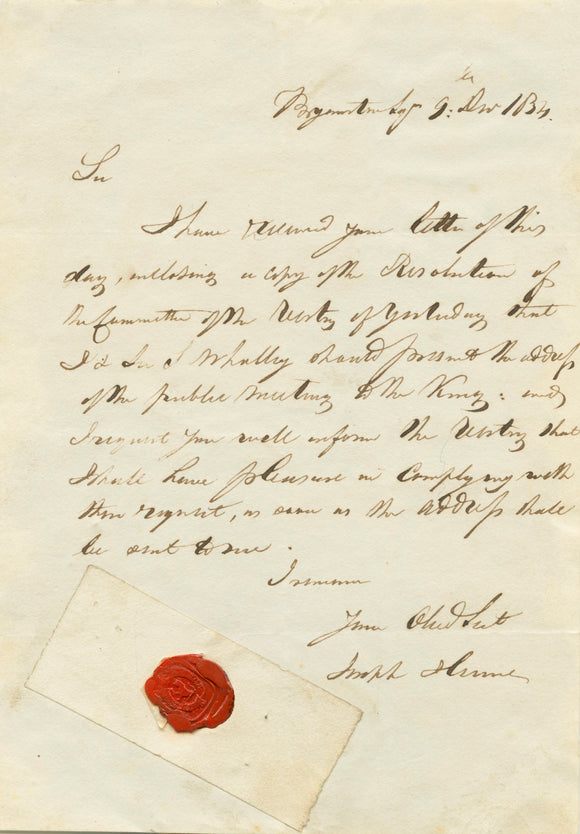 Bryanston Sqr 9th Dec 1834.
Sir
I have received your letter of this
day, enclosing a copy of the Resolution of
the Committee of the Vestry of Yesterday that
I & Sir S Whalley should present the address
of the public meeting to the King: and
I request you will inform the Vestry that
I shall have pleasure in Complying with
their request, as soon as the address shall
be sent to me.
I remain
Your Obed Sert
Joseph Hume